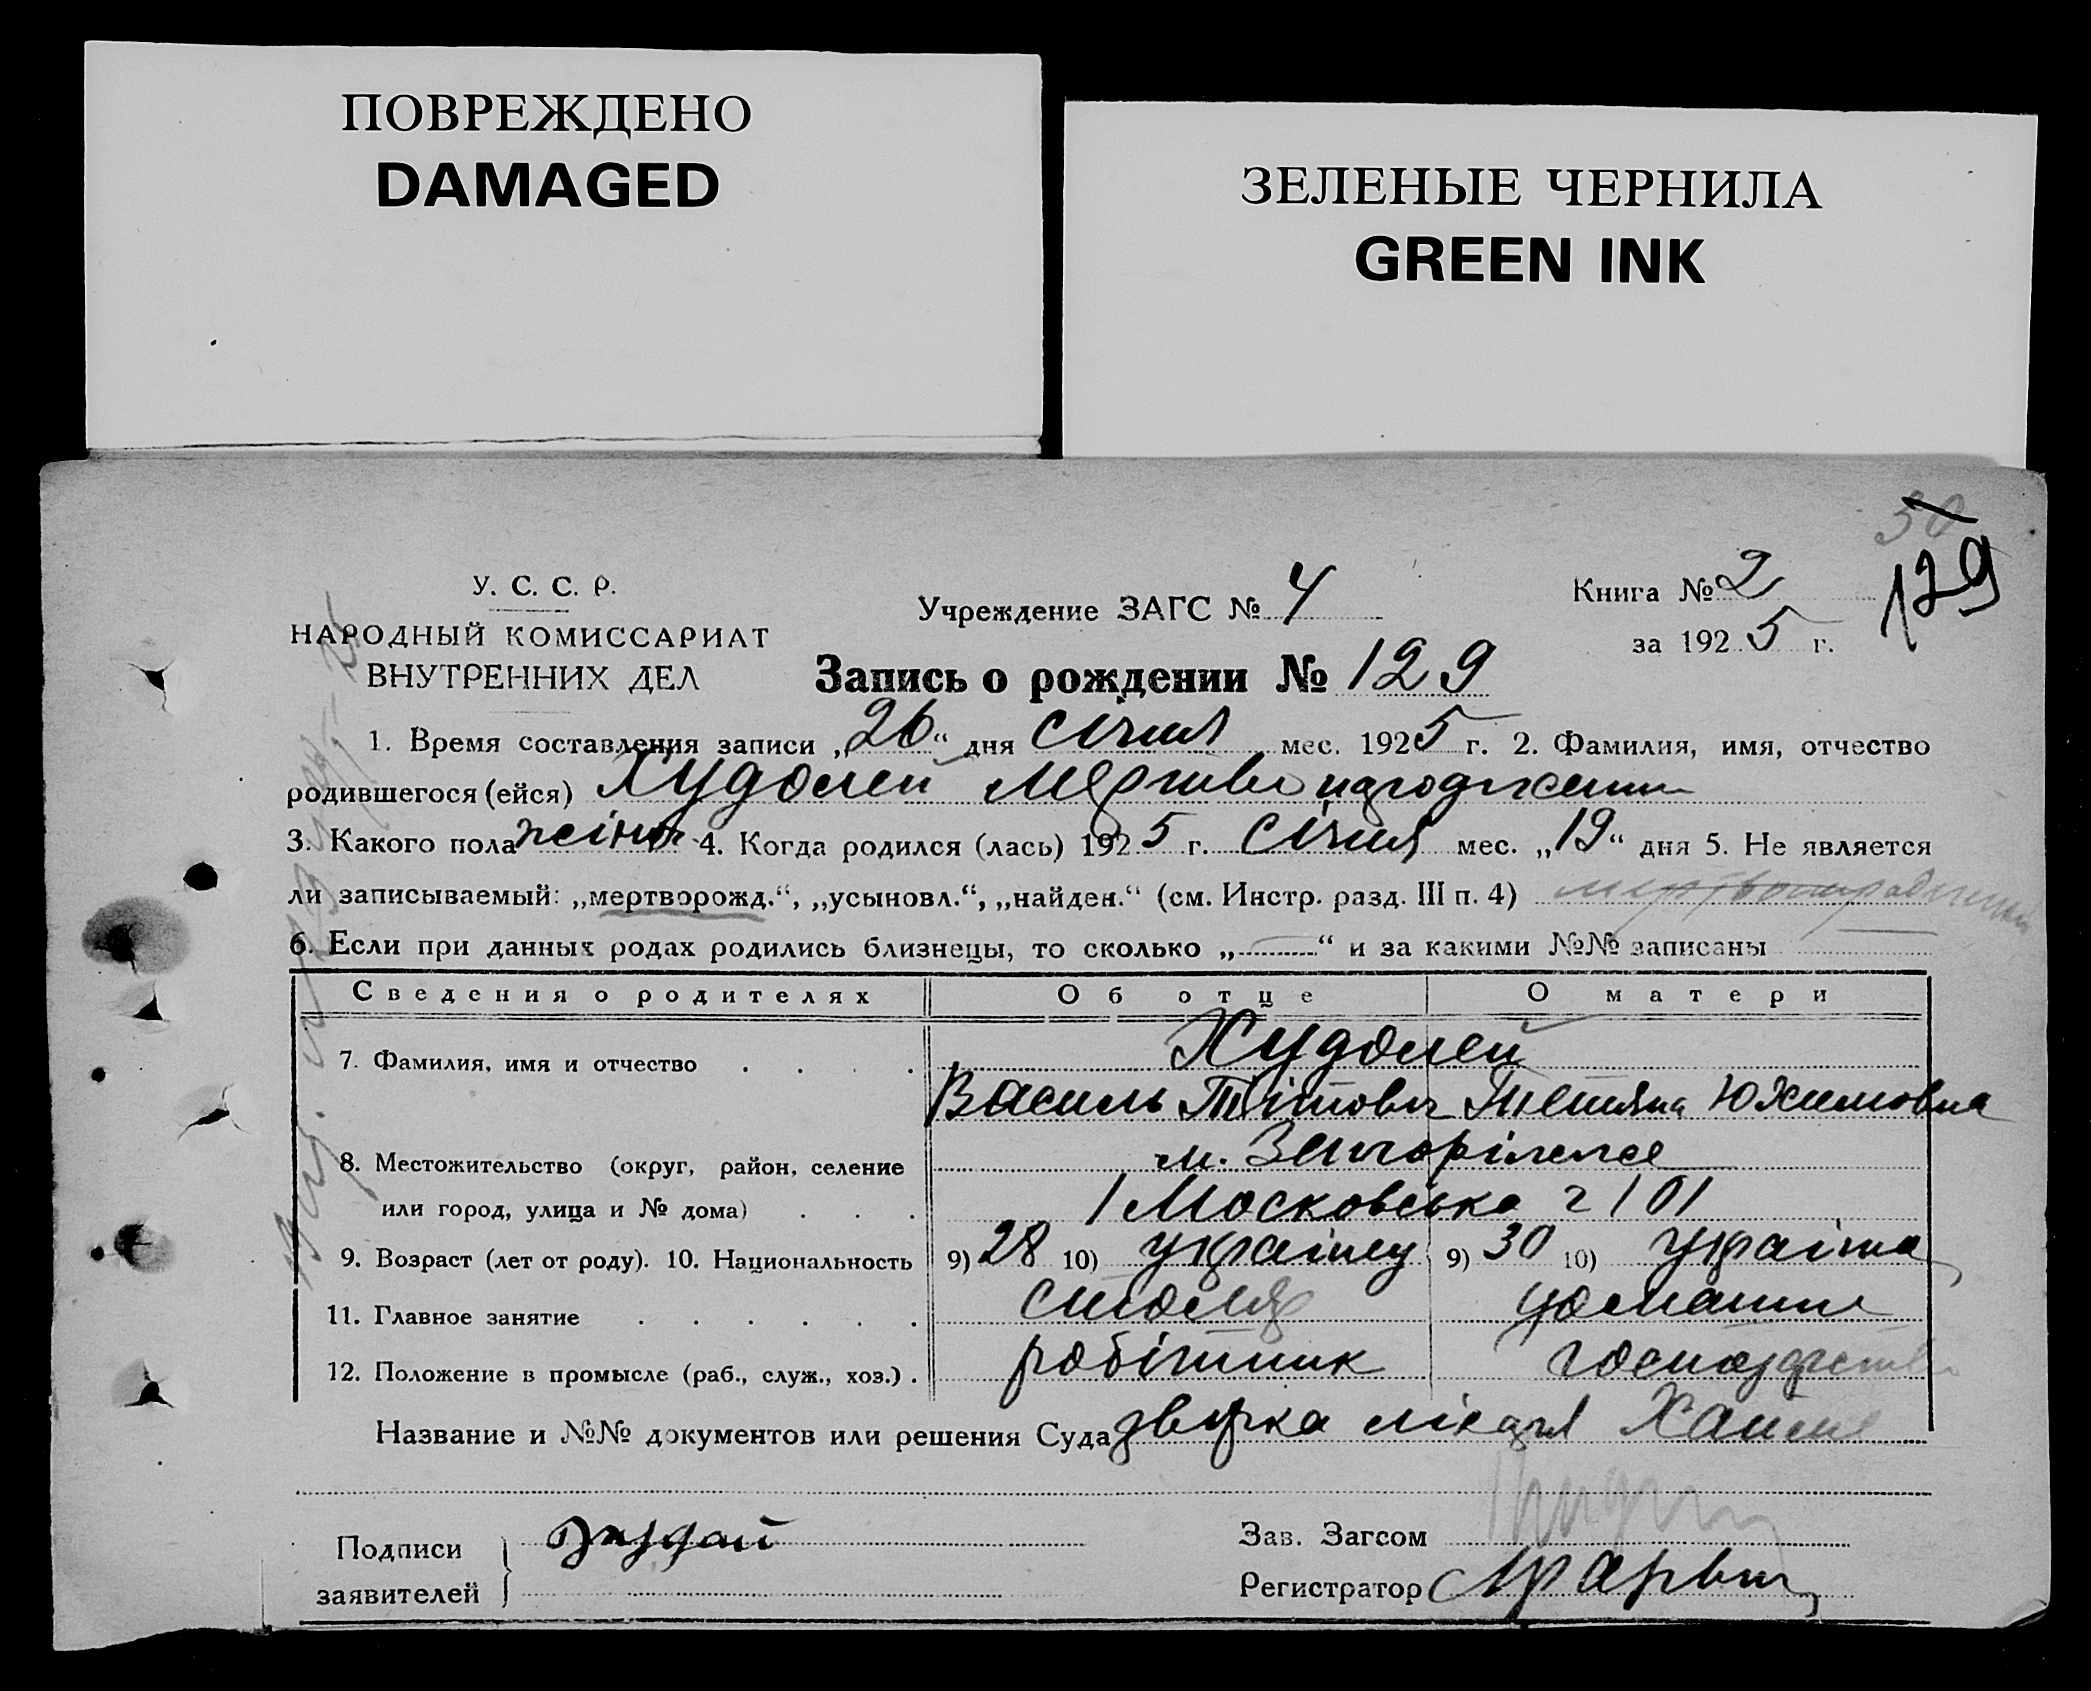 ПОВРЕЖДЕНО
DAMAGED
ЗЕЛЕНЫЕ ЧЕРНИЛА
GREEN INK
30
129
У. С. С. Р.
НАРОДНЫЙ КОМИССАРИАТ
ВНУТРЕННИХ ДЕЛ
Учреждение ЗАГС № 4
Книга № 2
за 1925 г.
Запись о рождении № 129
1. Время составления записи „26“ дня січня мес. 1925 г. 2. Фамилия, имя, отчество
родившегося (ейся) Худолей
3. Какого пола жіноч 4. Когда родился (лась) 1925 г. Січня мес. „19“ дня 5. Не является
ли записываемый: „мертворожд.“, „усыновл.“, „найден.“ (см. Инстр. разд. III п. 4)
6. Если при данных родах родились близнецы, то сколько „—“ и за какими №№ записаны
Сведения о родителях Об отце О матери
7. Фамилия, имя и отчество Худолей
Василь Тітович Тетяна Юхимовна
8. Местожительство (округ, район, селение м. Запоріжже
или город, улица и № дома) Московська 101
9. Возраст (лет от роду). 10. Национальность 9) 28 10) українц 9) 30 10) україн
11. Главное занятие столяр домашнє
12. Положение в промысле (раб., служ., хоз.) робітник господарство
Название и №№ документов или решения Суда довідка лікаря
Подписи
заявителей
Зав. Загсом
Регистратор